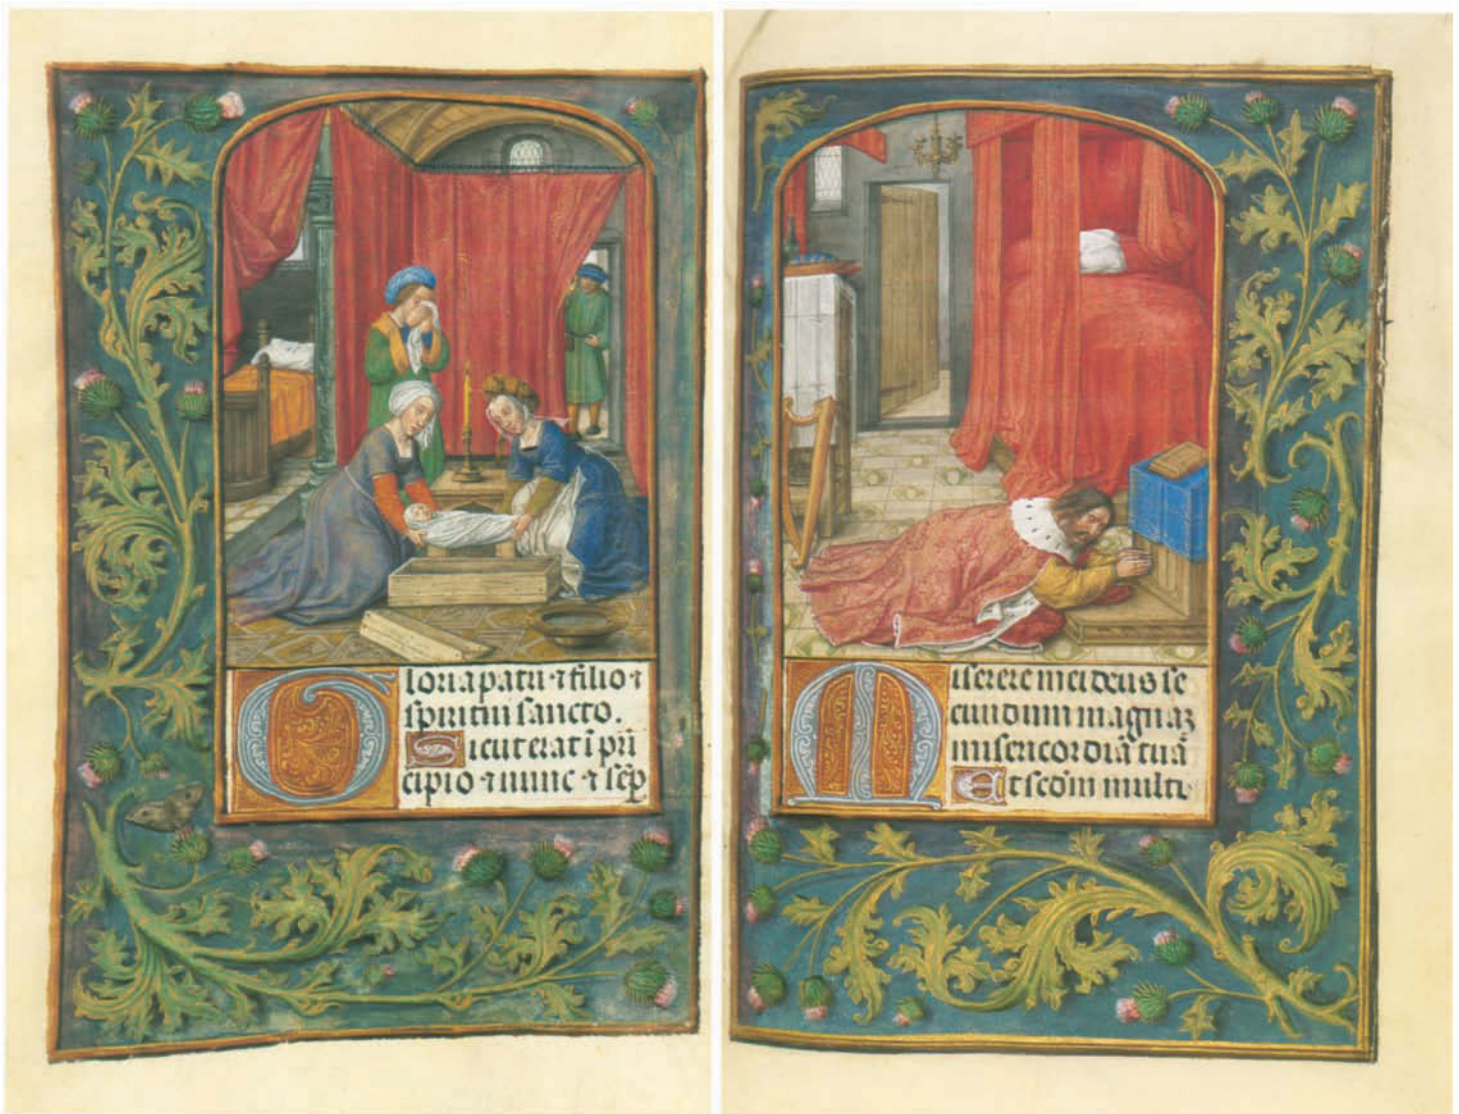 Gloria patri ⁊ filio ⁊
spiritui sancto.
Sicut erat ī prī
cipio ⁊ nunc ⁊ sēp
Miserere mei deus se
cundum magnaʒ
misericordiā tuā
Et scdm̄ multi